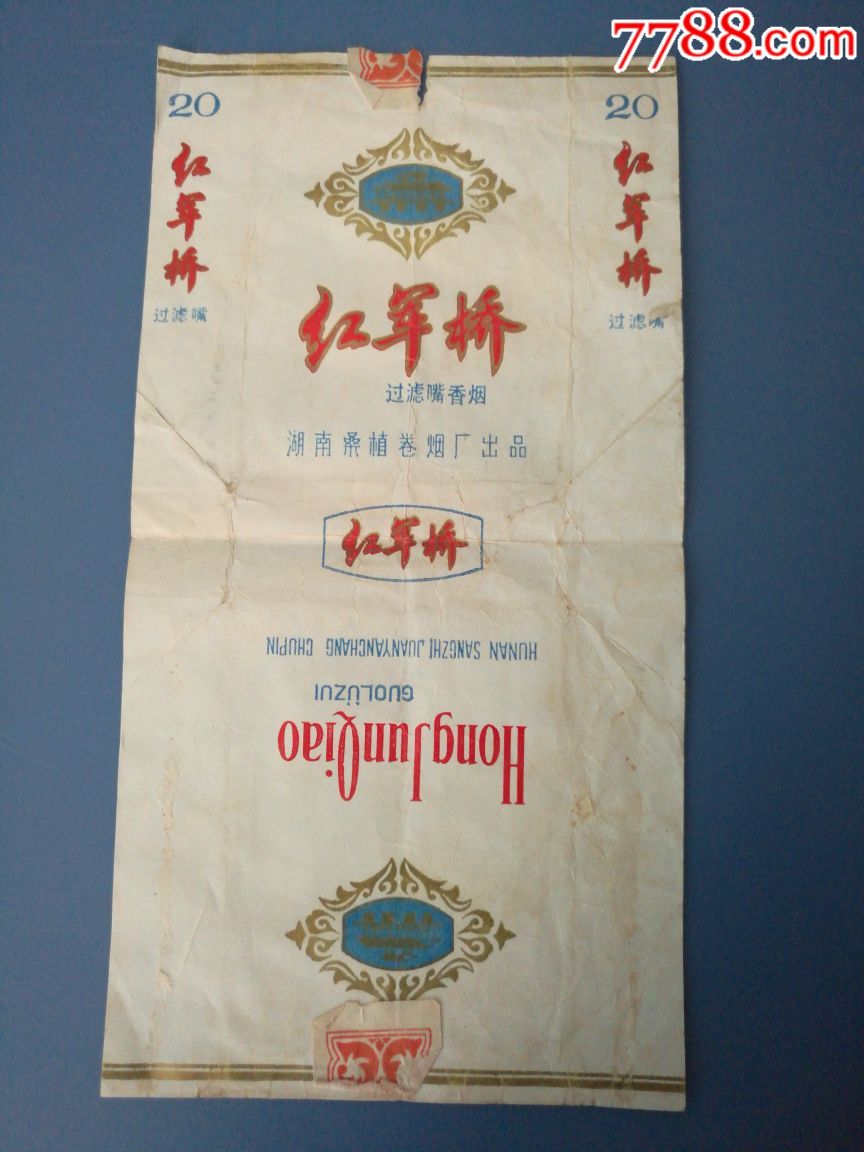 7788.com
20
20
红军桥
红军桥
过滤嘴
过滤嘴
红军桥
过滤嘴香烟
湖南桑植卷烟厂出品
红军桥
HUNAN SANGZHI JUANYANCHANG CHUPIN
GUOLǛZUI
HongJunQiao